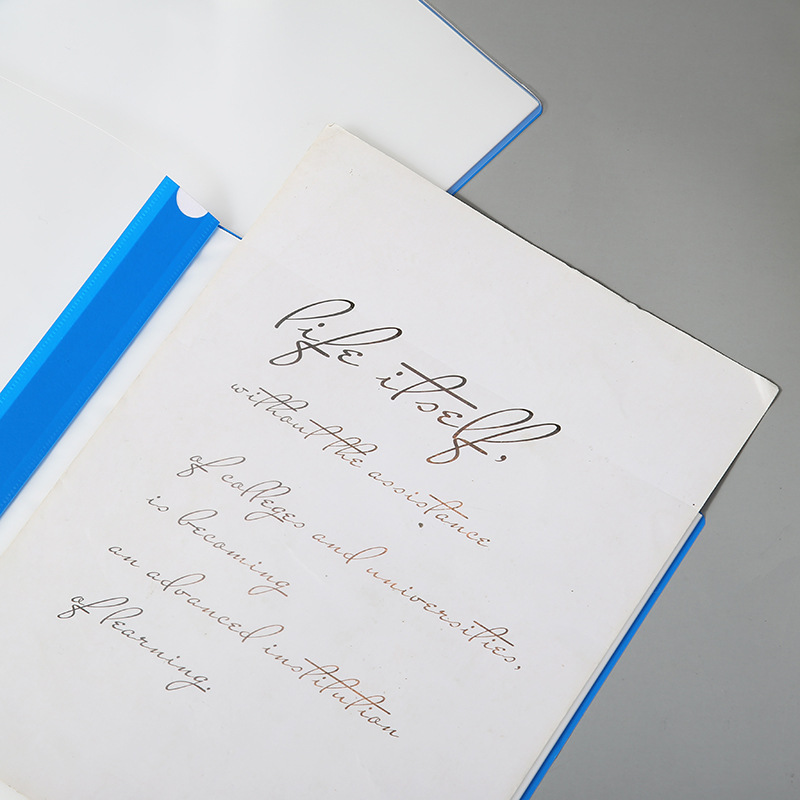 life itself,
without the assistance
of colleges and universities,
is becoming
an advanced institution
of learning.